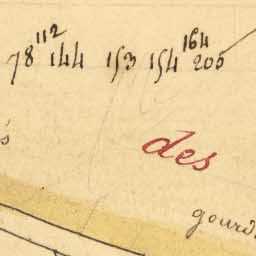 112 164
78 144 153 154 205
des
gourd